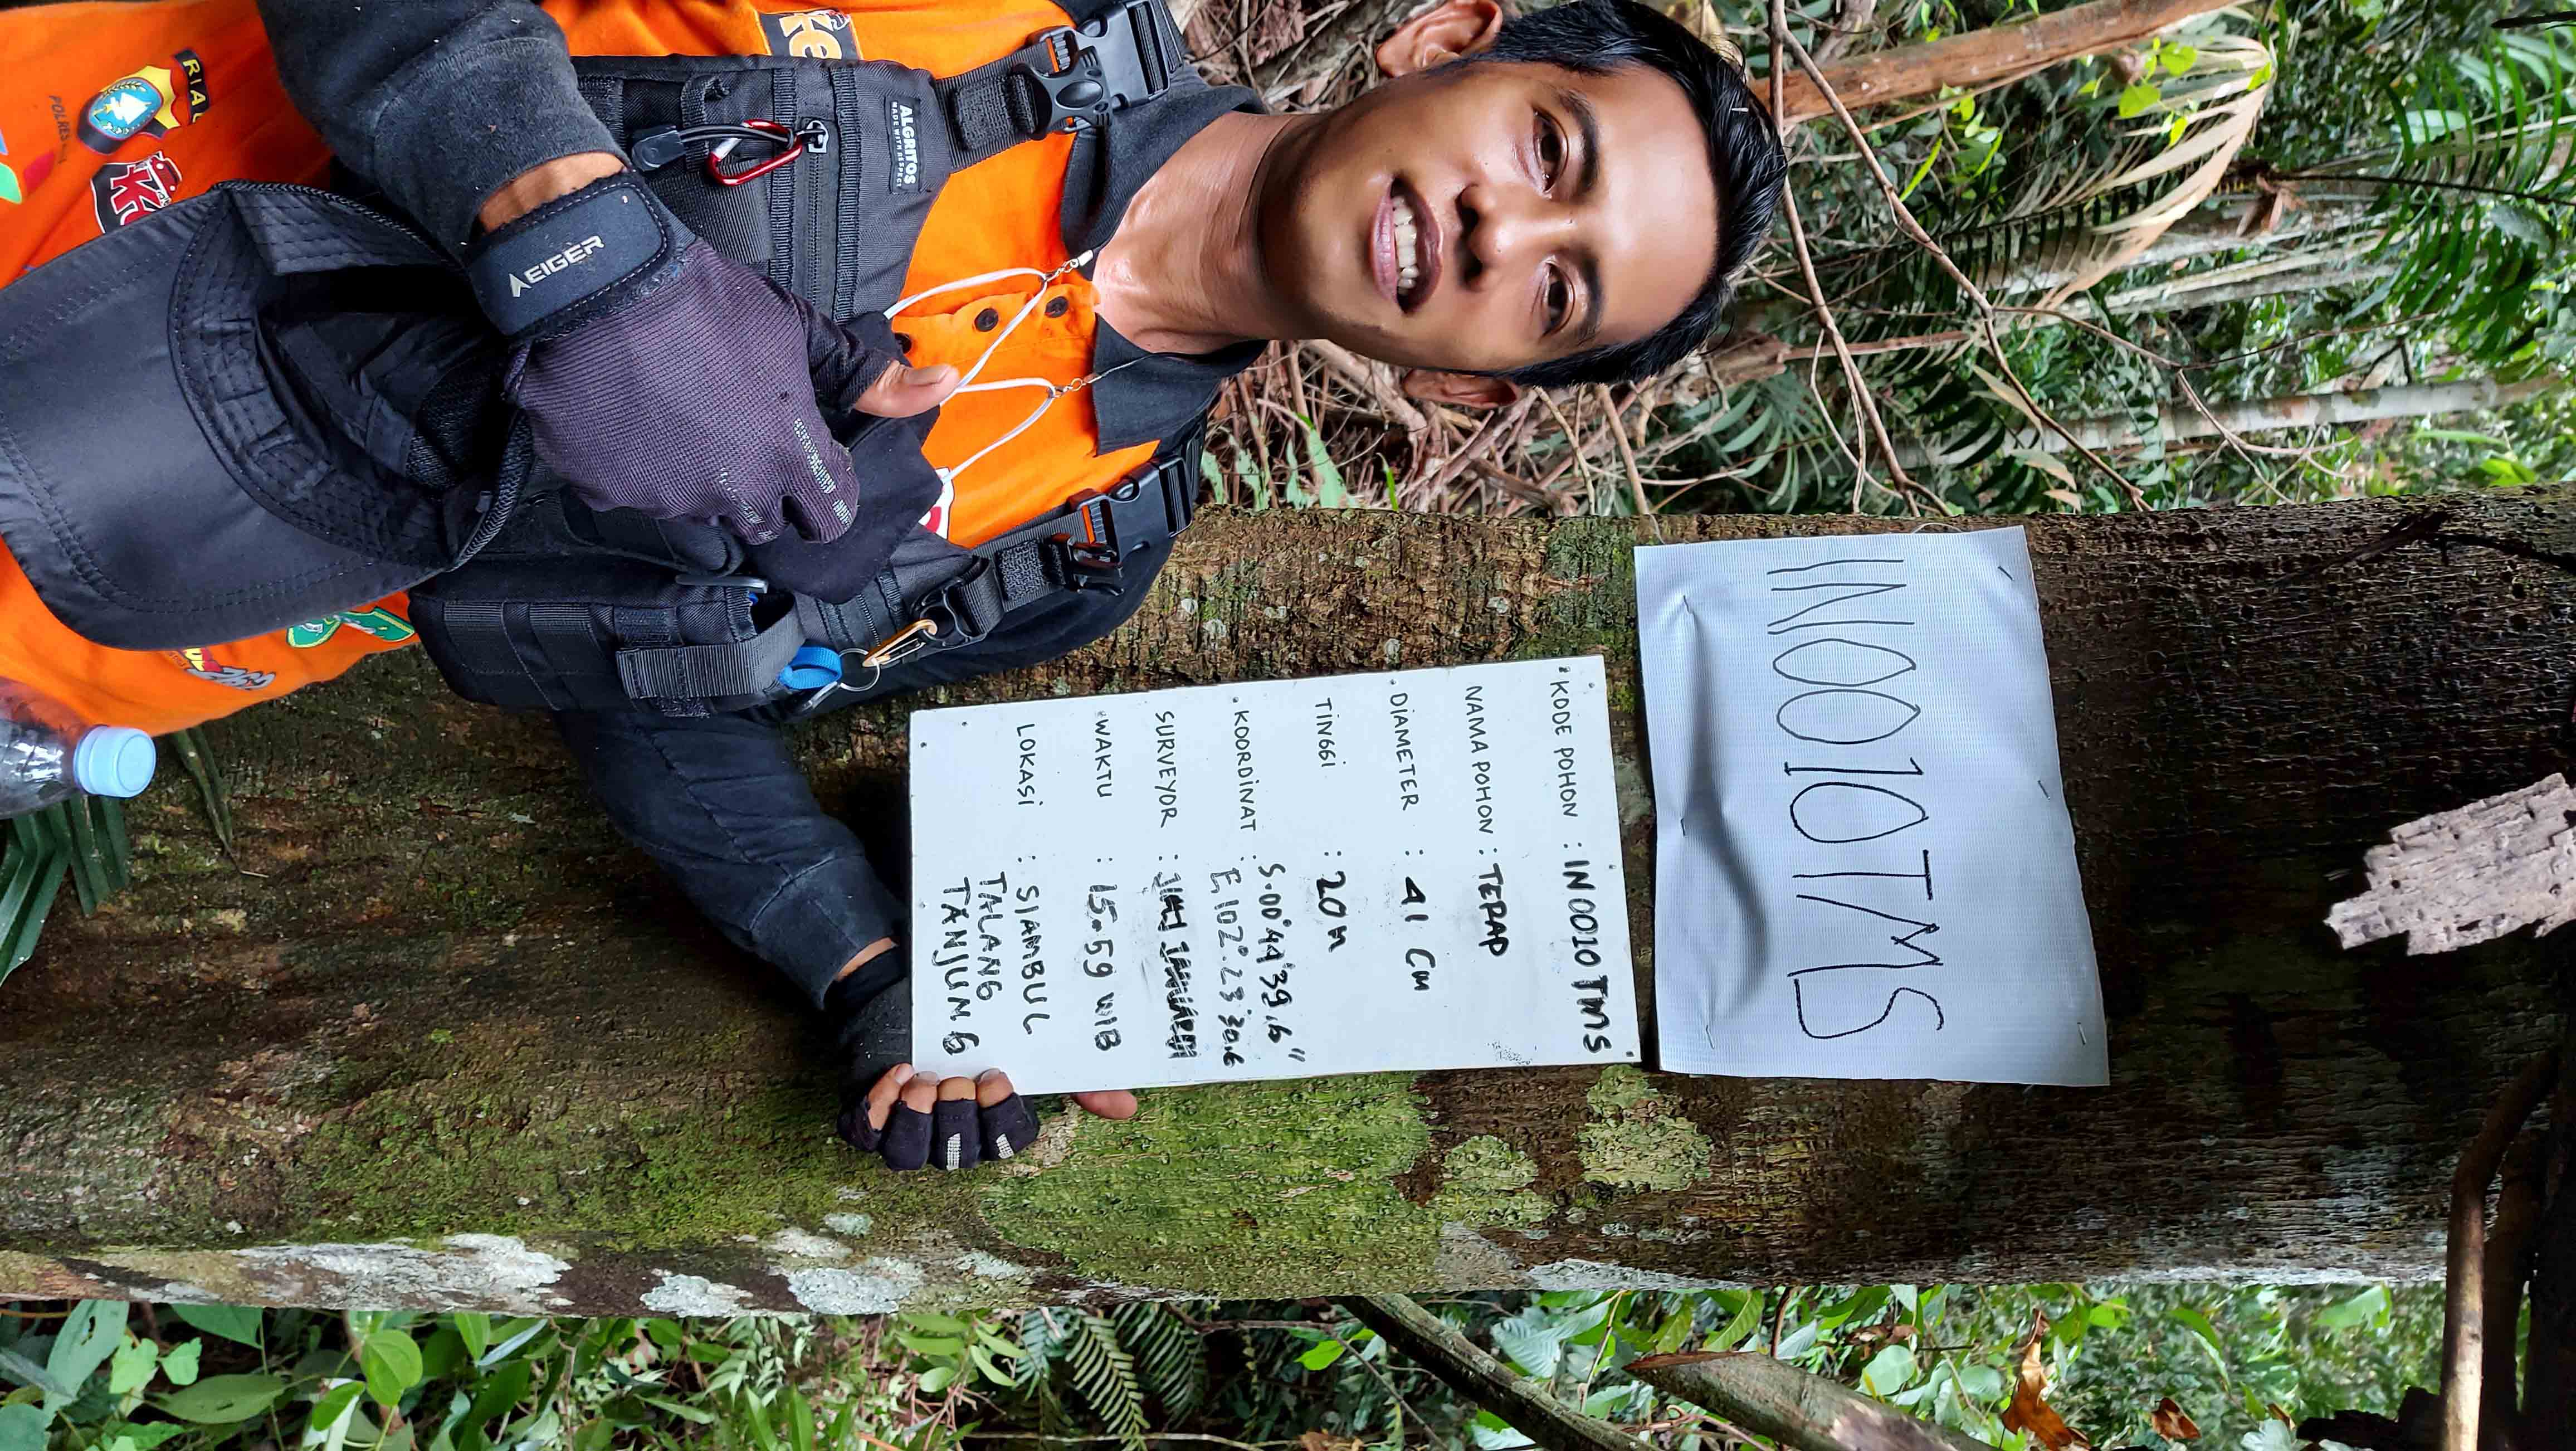 IN0010TMS
KODE POHON : IN0010 TMS
NAMA POHON : TERAP
DIAMETER : 41 Cm
TINGGI : 20 m
KOORDINAT : S.00°44'39.6"
E 102°.23'30.6
SURVEYOR : JANUARDI
WAKTU : 15.59 WIB
LOKASI : SIAMBUL
TALANG
TANJUNG
ALGRITOS
MADE WITH RESPECT
EIGER
RIAU